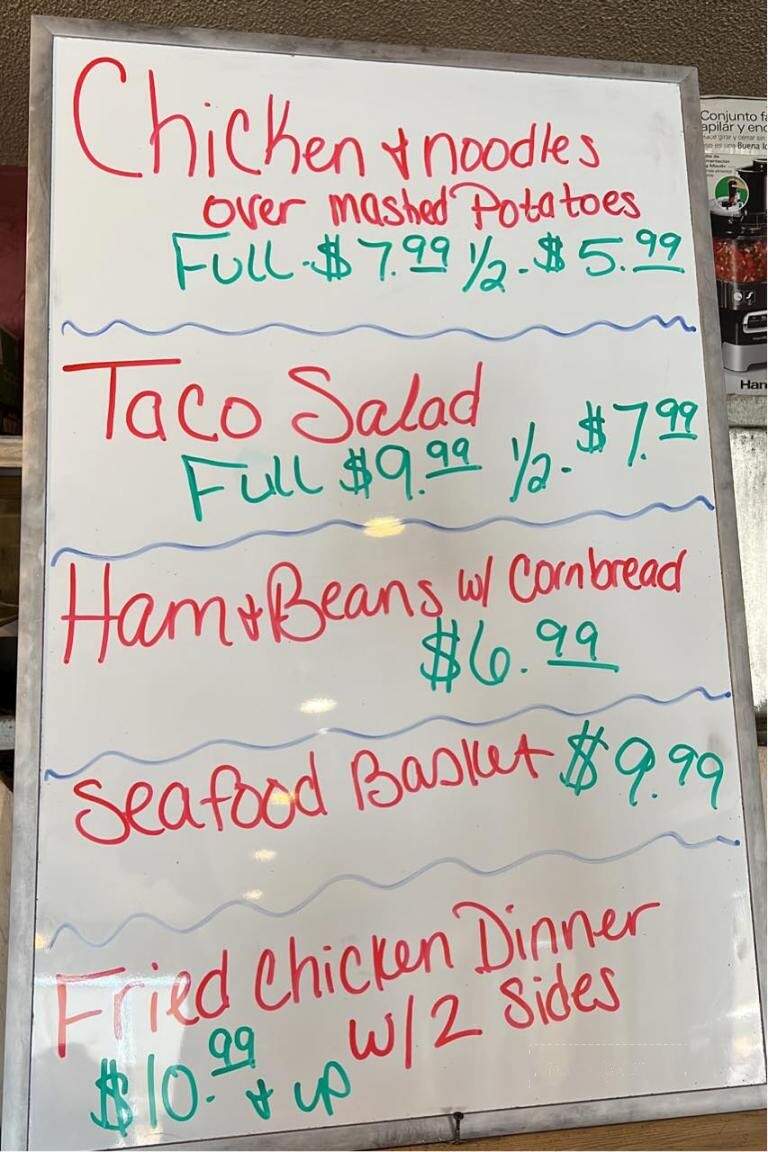 Chicken + noodles
over mashed Potatoes
Full - $7.99 1/2 - $5.99
Taco Salad
Full $9.99 1/2 - $7.99
Ham + Beans w/ Cornbread
$6.99
Seafood Basket $9.99
Fried Chicken Dinner
w/2 Sides
$10.99 + up
Conjunto
Buena
Ham